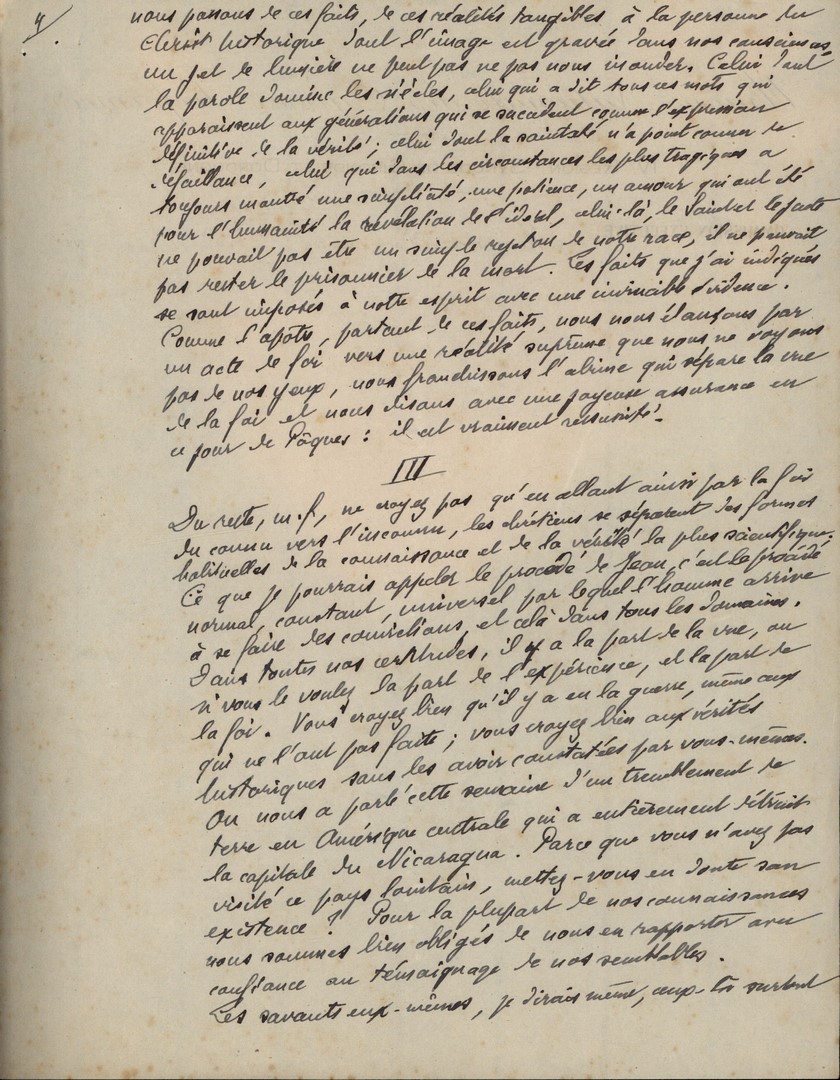 nous passons de ces faits, de ces réalités tangibles à la personne du
Christ historique dont l'image est gravée dans nos consciences,
un jet de lumière ne peut pas ne pas nous inonder. Celui dont
la parole domine les siècles, celui qui a dit tous ces mots qui
apparaissent aux générations qui se succèdent comme l'expression
définitive de la vérité ; celui dont la sainteté n'a point connu de
défaillance, celui qui dans les circonstances les plus tragiques a
toujours montré une simplicité, une patience, un amour qui ont été
pour l'humanité la révélation de l'idéal, celui-là, le Saint et le juste
ne pouvait pas être un simple rejeton de notre race, il ne pouvait
pas rester le prisonnier de la mort. Les faits que j'ai indiqués
se sont imposés à notre esprit avec une invincible évidence.
Comme l'apôtre, partant de ces faits, nous nous élançons par
un acte de foi vers une réalité suprême que nous ne voyons
pas de nos yeux, nous franchissons l'abîme qui sépare la vue
de la foi et nous disons avec une joyeuse assurance en
ce jour de Pâques : il est vraiment ressuscité !
III
Du reste, m.f., ne croyez pas qu'en allant ainsi par la foi
du connu vers l'inconnu, les chrétiens se séparent des formes
habituelles de la connaissance et de la vérité la plus scientifique.
Ce que je pourrais appeler le procédé de Jean, c'est le procédé
normal, constant, universel par lequel l'homme arrive
à se faire des convictions, et cela dans tous les domaines.
Dans toutes nos certitudes, il y a la part de la vue, ou
si vous le voulez la part de l'expérience, et la part de
la foi. Vous croyez bien qu'il y a eu la guerre, même ceux
qui ne l'ont pas faite ; vous croyez bien aux vérités
historiques sans les avoir constatées par vous-mêmes.
On nous a parlé cette semaine d'un tremblement de
terre en Amérique centrale qui a entièrement détruit
la capitale du Nicaragua. Parce que vous n'avez pas
visité ce pays lointain, mettez-vous en doute son
existence ? Pour la plupart de nos connaissances
nous sommes bien obligés de nous en rapporter avec
confiance au témoignage de nos semblables.
Les savants eux-mêmes, je dirais même, eux surtout